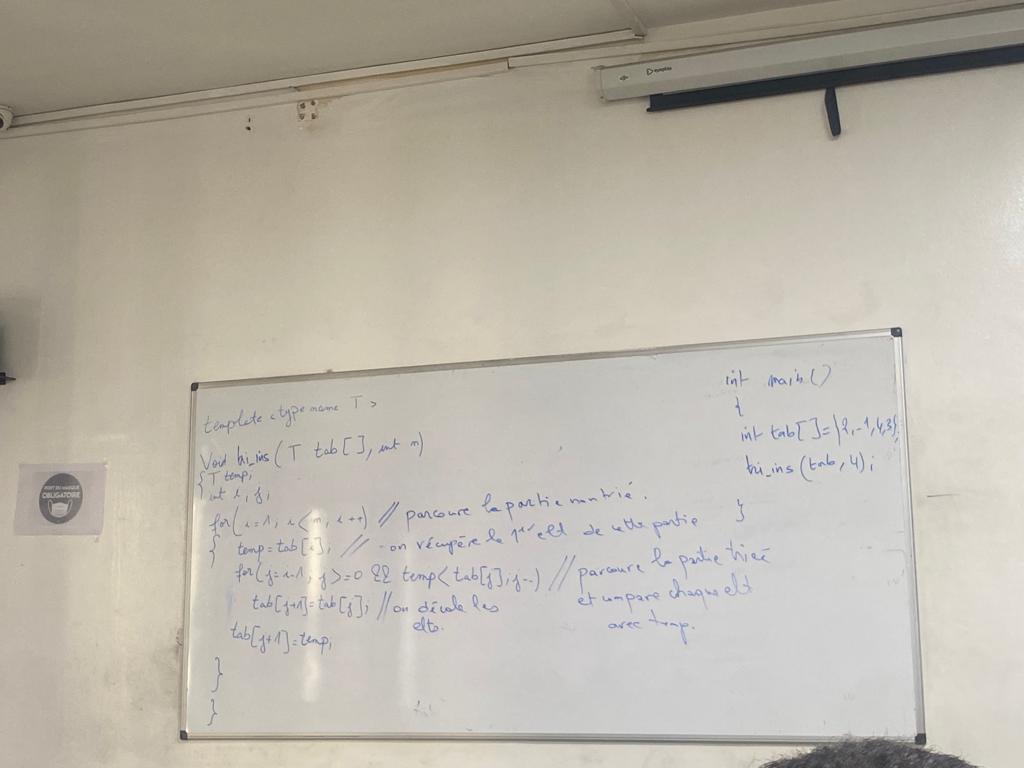 template <typename T>
Void tri_ins(T tab[], int n)
{ T temp;
int i, j;
for(i=1, i<n, i++) // parcoure la partie nontrié.
{ temp=tab[i]; // on récupère le 1er elt de cette partie
for(j=i-1, j>=0 && temp<tab[j]; j--) // parcoure la partie triée
et compare chaque elt
avec temp.
tab[j+1]=tab[j]; // on décale les
elts.
tab[j+1]=temp;
}
}
int main()
{
int tab[]={2,-1,4,3};
tri_ins(tab, 4);
}
PORT DU MASQUE
OBLIGATOIRE